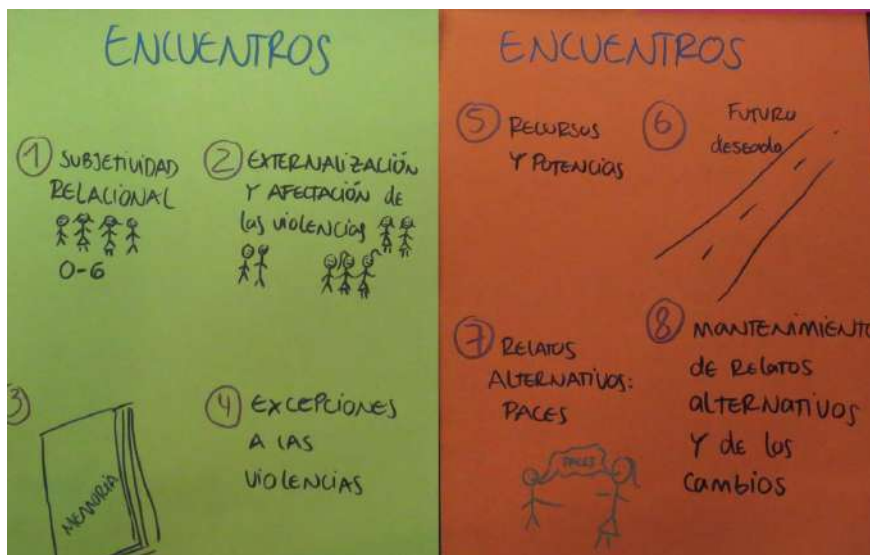 ENCUENTROS
① SUBJETIVIDAD
RELACIONAL
0-6
② EXTERNALIZACIÓN
Y AFECTACIÓN de
las violencias
3
MEMORIA
④ EXCEPCIONES
A LAS
VIOLENCIAS
ENCUENTROS
⑤ RECURSOS
Y POTENCIAS
⑥ FUTURO
deseado
⑦ RELATOS
ALTERNATIVOS:
PACES
PACES
⑧ MANTENIMIENTO
de RELATOS
alTERNATIVOS
Y de los
cambios